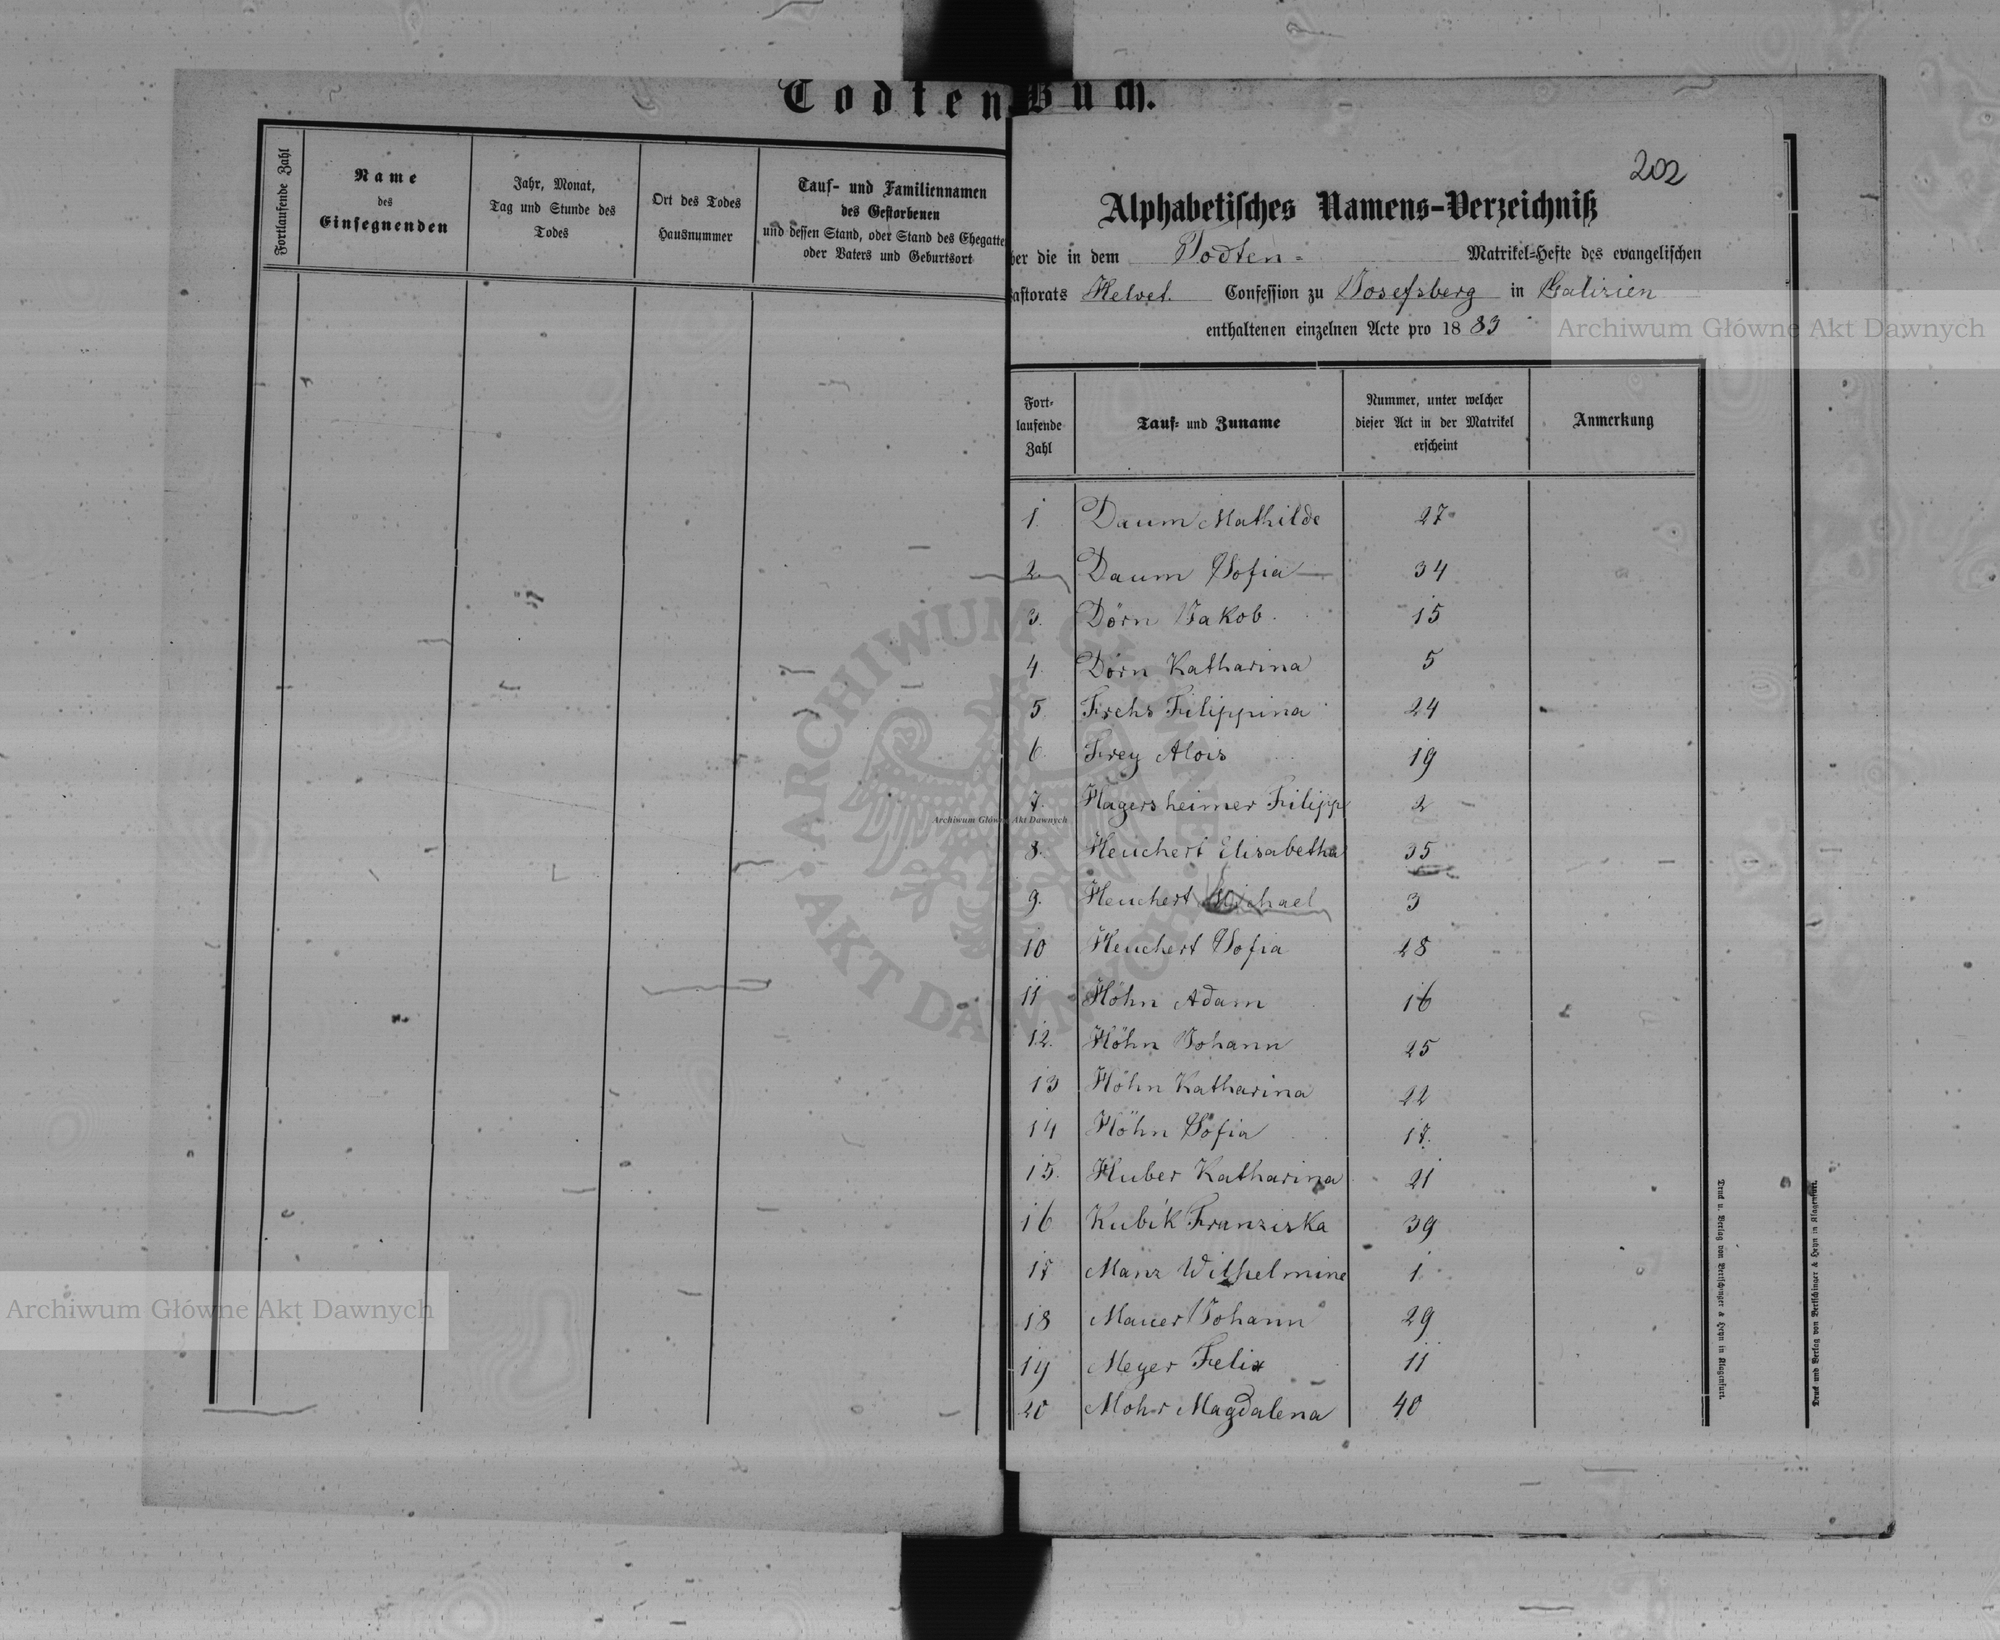 Todten Buch.
Fortlaufende Zahl
Name
des
Einsegnenden
Jahr, Monat,
Tag und Stunde des
Todes
Ort des Todes
Hausnummer
Tauf- und Familiennamen
des Gestorbenen
und dessen Stand, oder Stand des Ehegatte
oder Vaters und Geburtsort
202
Alphabetisches Namens-Verzeichniß
ber die in dem Todten- Matrikel-Hefte des evangelischen
astorats Helvet. Confession zu Josefsberg in Galizien
enthaltenen einzelnen Acte pro 1883
Fort-
laufende
Zahl
Tauf- und Zuname
Nummer, unter welcher
dieser Act in der Matrikel
erscheint
Anmerkung
1. Daum Mathilde 27
2 Daum Sofia 34
3. Dörn Jakob 15
4. Dörn Katharina 5
5 Frehs Filippina 24
6. Frey Alois 19
7. Hagersheimer Filipp 2
8. Heuchert Elisabetha 35
9. Heuchert Michael 3
10 Heuchert Sofia 28
11 Höhn Adam 16
12. Höhn Johann 25
13 Höhn Katharina 22
14 Höhn Sofia 17.
15. Huber Katharina 21
16 Kubik Franziska 39
17 Manz Wilhelmine 1
18 Mauer Johann 29
19 Meyer Felix 11
20 Mohr Magdalena 40
Druck u. Verlag von Bertschinger & Heyn in Klagenfurt.
Druck und Verlag von Bertschinger & Heyn in Klagenfurt.
Archiwum Główne Akt Dawnych
Archiwum Główne Akt Dawnych
Archiwum Główne Akt Dawnych
ARCHIWUM GŁÓWNE
AKT DAWNYCH